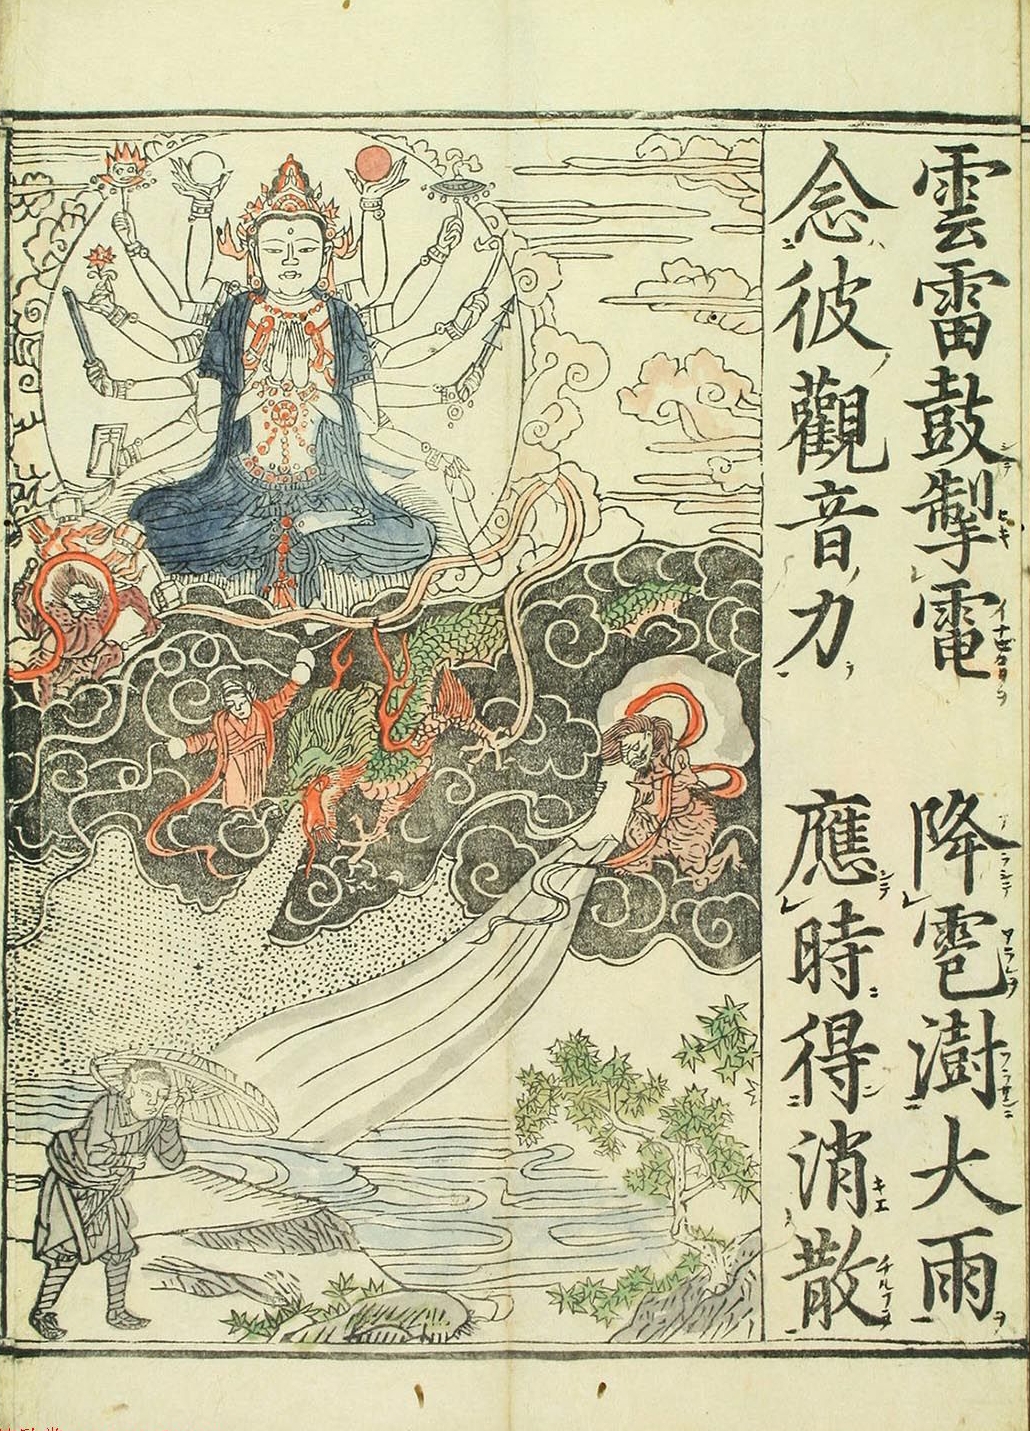 雲雷鼓掣電 降雹澍大雨
念彼觀音力 應時得消散